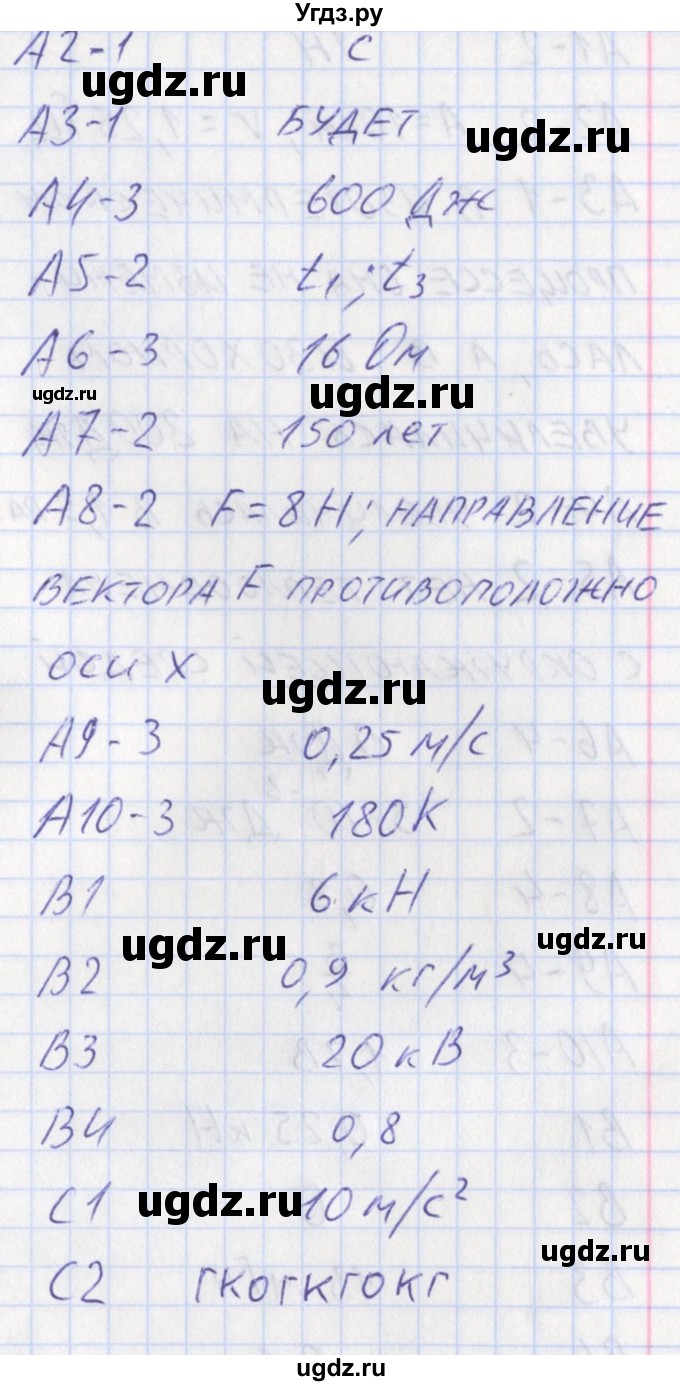 Угдз.ру
А2-1 С
ugdz.ru
А3-1 БУДЕТ
ugdz.ru
А4-3 600 Дж
А5-2 t₁; t₃
А6-3 16 Ом
ugdz.ru
ugdz.ru
А7-2 150 лет
А8-2 F = 8 Н; НАПРАВЛЕНИЕ
ВЕКТОРА F ПРОТИВОПОЛОЖНО
ОСИ Х
ugdz.ru
А9-3 0,25 м/с
А10-3 180К
В1 6 кН
ugdz.ru
ugdz.ru
В2 0,9 кг/м³
В3 20 кВ
В4 0,8
С1 10 м/с²
ugdz.ru
ugdz.ru
С2 гкогкгокг
ugdz.ru